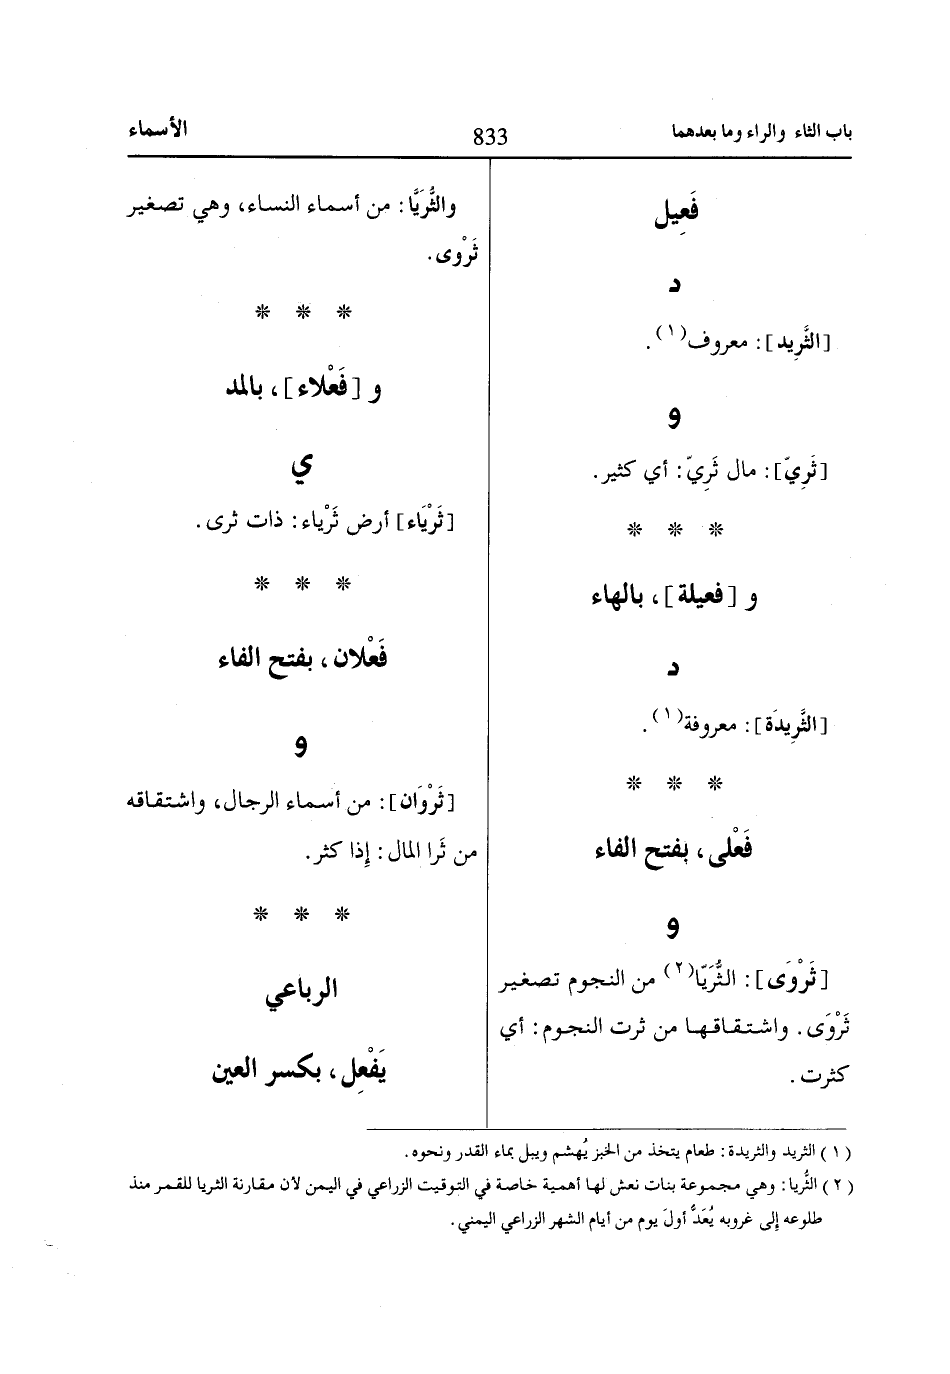 باب الثاء والراء وما بعدهما
833
الأسماء
فَعِيل
د
[الثَّرِيد]: معروف(١).
و
[ثَرِيّ]: مال ثَرِيّ: أي كثير.
* * *
و [فعيلة]، بالهاء
د
[الثَّرِيدَة]: معروفة(١).
* * *
فَعْلى، بفتح الفاء
و
[ثَرْوَى]: الثُّرَيّا(٢) من النجوم تصغير
ثَرْوَى. واشتقاقها من ثرت النجوم: أي
كثرت.
والثُّرَيَّا: من أسماء النساء، وهي تصغير
ثَرْوى.
* * *
و [فَعْلاء]، بالمد
ي
[ثَرْيَاء] أرض ثَرْياء: ذات ثرى.
* * *
فَعْلان، بفتح الفاء
و
[ثَرْوَان]: من أسماء الرجال، واشتقاقه
من ثَرا المال: إذا كثر.
* * *
الرباعي
يَفْعِل، بكسر العين
(١) الثريد والثريدة: طعام يتخذ من الخبز يُهشم ويبل بماء القدر ونحوه.
(٢) الثُّريا: وهي مجموعة بنات نعش لها أهمية خاصة في التوقيت الزراعي في اليمن لأن مقارنة الثريا للقمر منذ
طلوعه إلى غروبه يُعَدُّ أولَ يوم من أيام الشهر الزراعي اليمني.